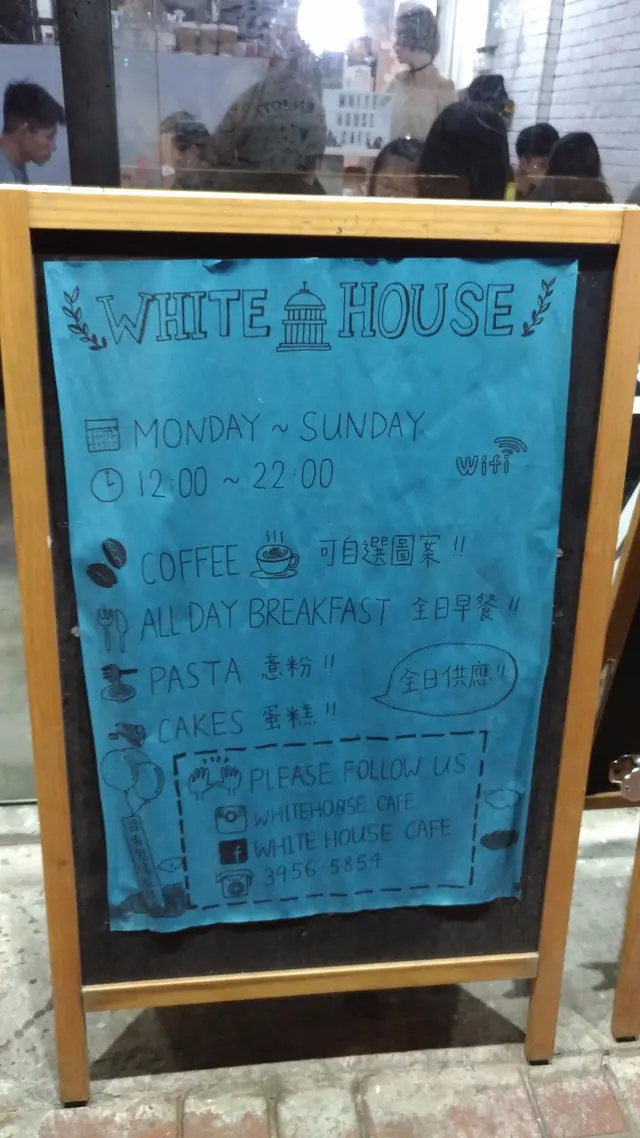 WHITE
HOUSE
CAFE
WHITE HOUSE
MONDAY ~ SUNDAY
12:00 ~ 22:00
Wifi
COFFEE 可自選圖案!!
ALL DAY BREAKFAST 全日早餐!!
PASTA 意粉!!
全日供應!!
CAKES 蛋糕!!
PLEASE FOLLOW US
WHITEHOUSE CAFE
f WHITE HOUSE CAFE
3956-5854